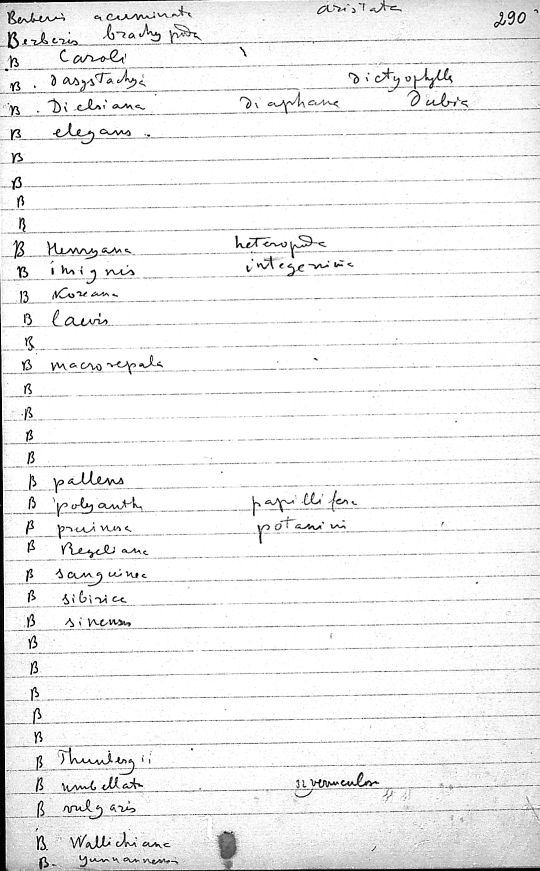 Berberis acuminata aristata 290
Berberis brachypoda
B Caroli
B. dasystachya dictyophylla
B. Dielsiana diaphana dubia
B elegans.
B
B
B
B
B Henryana heteropoda
B insignis integerrima
B Koreana
B laevis
B
B macrosepala
B
B
B
B
B pallens
B polyantha papillifera
B pruinosa potanini
B Regeliana
B sanguinea
B sibirica
B sinensis
B
B
B
B
B
B Thunbergii
B umbellata
B vulgaris
B. Wallichiana
B. yunnanensis